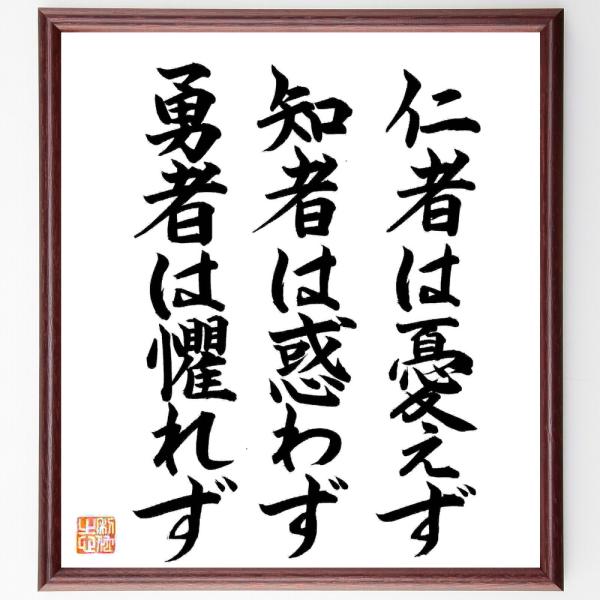 仁者は憂えず
知者は惑わず
勇者は懼れず